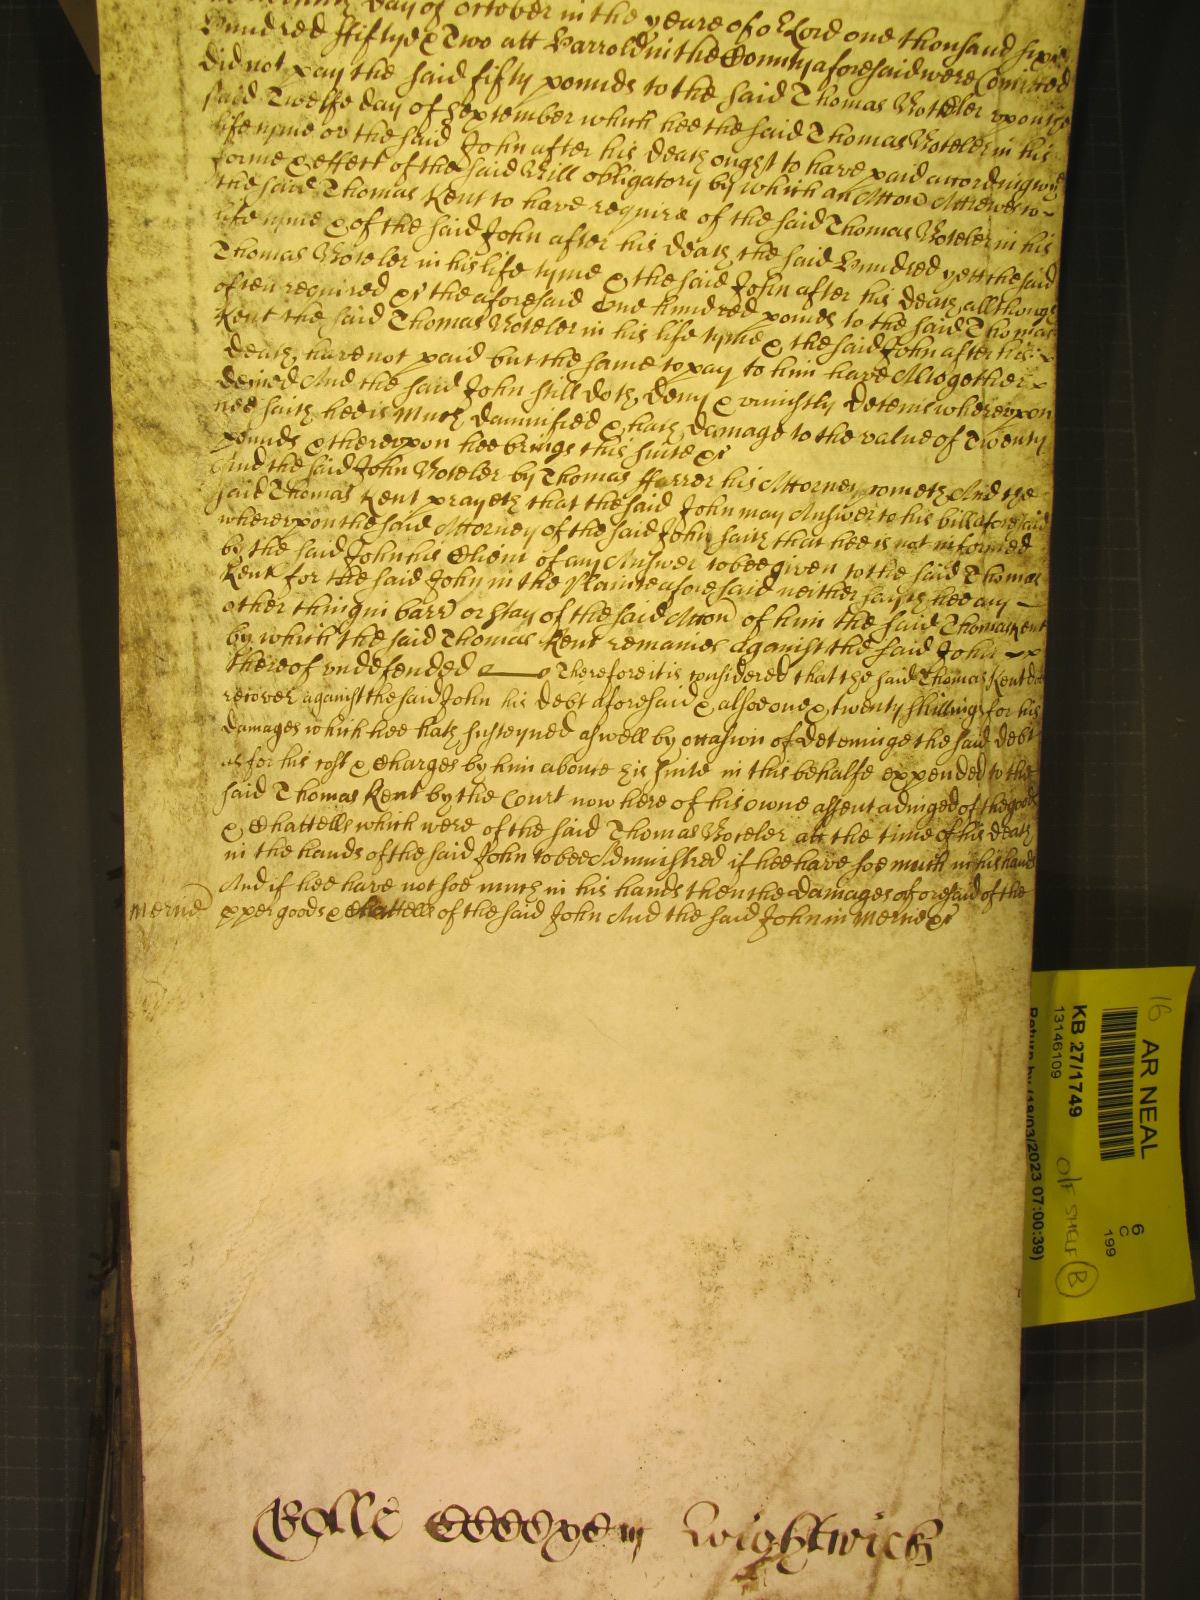 day of October in the yeare of oʳ Lord one thousand six
hundred ffiftye & Two att Harrold in the County aforesaid were Comitted
did not pay the said fifty pounds to the said Thomas Boteler upon the
said Twelfe day of September which hee the said Thomas Boteler in his
life tyme or the said John after his death ought to have paid according to yᵉ
forme & effect of the said Bill obligatory by which an Accon Accrewed to
the said Thomas Kent to have & require of the said Thomas Boteler in his
life tyme & of the said John after his death the said hundred yett the said
Thomas Boteler in his life tyme & the said John after his death allthough
often required &c the aforesaid One hundred pounds to the said Thomas
Kent the said Thomas Boteler in his life tyme & the said John after his
death, have not paid but the same to pay to him have Altogether
denied And the said John still doth deny & uniustly deteins whereupon
hee saith hee is Much damnified & hath damage to the value of Twenty
pounds & thereupon hee brings this suite &c
And the said John Boteler by Thomas ffarrer his Attorney cometh And the
said Thomas Kent prayeth that the said John may Answer to his bill aforesaid
whereupon the said Attorney of the said John saith that hee is not informed
by the said John his Client of any Answer to bee given to the said Thomas
Kent for the said John in the Plainte aforesaid neither sayth hee any
other thing in barr or stay of the said Accon of him the said Thomas Kent
by which the said Thomas Kent remaines against the said John
thereof undefended Therefore it is considered that the said Thomas Kent doe
recover against the said John his debt aforesaid & alsoe one & twenty shillings for his
damages which hee hath susteyned aswell by occasion of deteininge the said debt
as for his cost & Charges by him aboute his suite in this behalfe expended to the
said Thomas Kent by the Court now here of his owne assent adiudged of the goods
& Chattells which were of the said Thomas Boteler att the time of his death
in the hands of the said John to bee Administred if hee have soe much in his hands
And if hee have not soe much in his hands then the damages aforesaid of the
Merne
proper goods & Chattells of the said John And the said John in Merne &c
Rolle Wightwick
16 AR NEAL
KB 27/1749
13146109
Return by (18/03/2023 07:00:39)
6
C
199
O/F SHELF B